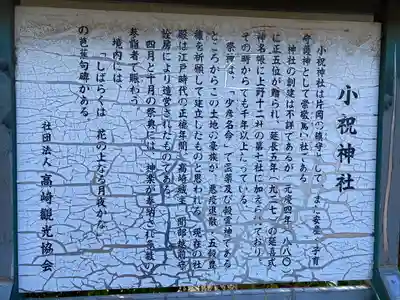 小祝神社
小祝神社は片岡の鎮守として、また安産、子育
守護神として崇敬篤い社である
神社の創建は不詳であるが、元慶四年(八八〇)
に正五位が贈られ、延長五年(九二七)の延喜式
神名帳に上野十二社の第七社に加えられており、
その時からでも千年以上たっている。
祭神は、「少彦名命」で医薬及び穀霊神である
ところからこの土地の豪族が、悪疫退散、五穀豊
穣を祈願して建立したものと思われる。現在の社
殿は江戸時代の正徳年間、高崎城主、間部越前守
詮房により造営されたものである。
四月と十月の祭典には、神楽が奉納され
参詣者で賑わう。
境内には、
「しばらくは 花の上なる月夜かな」
の芭蕉句碑がある。
社団法人 高崎観光協会